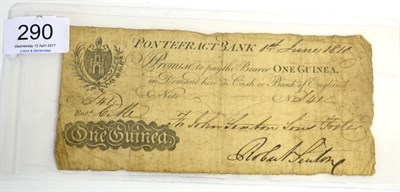 290
Wednesday 12 April 2017
Coins & Banknotes
PONTEFRACT BANK 1st June 1810
I Promise to pay the Bearer ONE GUINEA,
on Demand here in Cash or Bank of England
Note
One Guinea.
For John Seaton Sons & Foster
Robert Seaton